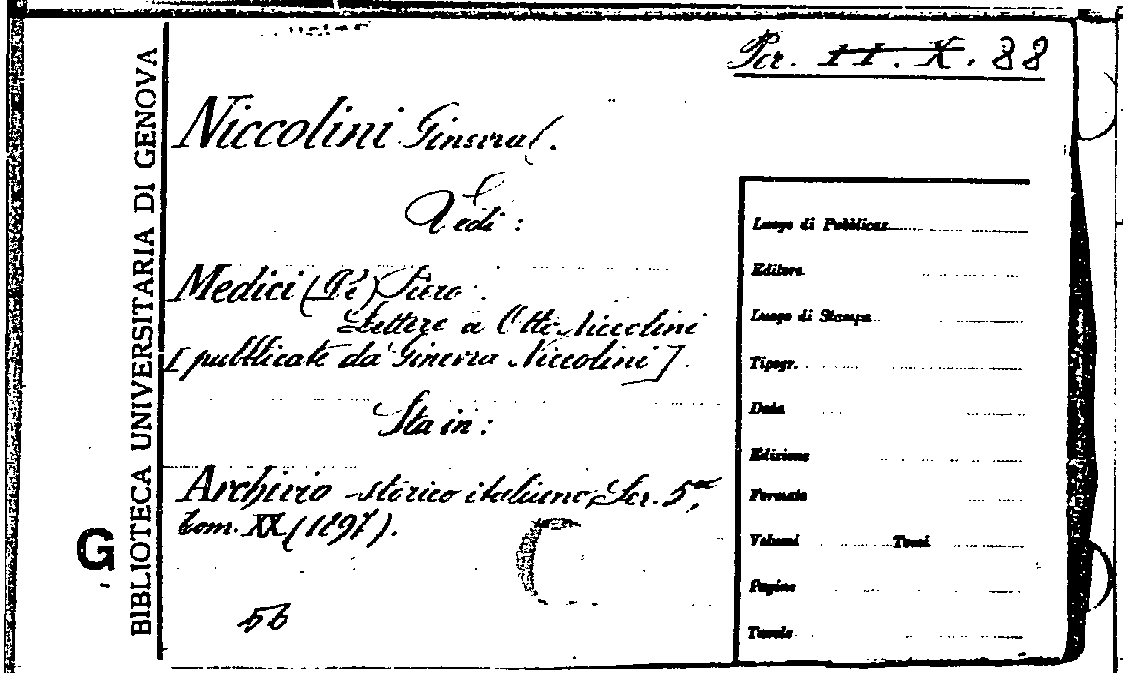 Per. II. X. 88
Niccolini Ginevra.
Vedi:
Medici (De) Piero.
Lettere a Otto Niccolini
[pubblicate da Ginevra Niccolini].
Sta in:
Archivio storico italiano, Ser. 5ª,
tom. XX (1897).
56
BIBLIOTECA UNIVERSITARIA DI GENOVA
G
Luogo di Pubblicaz.
Editore
Luogo di Stampa
Tipogr.
Data
Edizione
Formato
Volumi Tomi
Pagine
Tavole